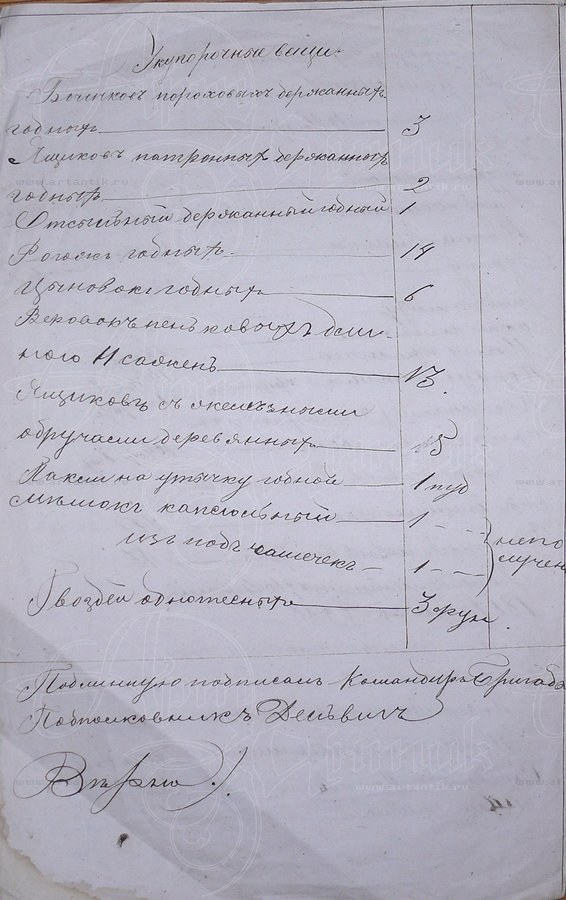 Укупорочные вещи.
Бочинковъ пороховыхъ держанныхъ
годныхъ 3
Ящиковъ патронныхъ держанныхъ
годныхъ 2
Отсыпный держанный годный 1
Рогожъ годныхъ 14
Цыновокъ годныхъ 6
Веровокъ пеньковыхъ дли-
ною 11 саженъ 13.
Ящиковъ съ железными
обручами деревянныхъ 5
Пакли на утычку годной 1 пуд
Мешокъ капсюльный 1
изъ подъ чашечекъ 1
непо
лучен
Гвоздей однотесныхъ 3 фун.
Подлинную подписалъ Командиръ Бригады
Подполковникъ
Верно
www.artantik.ru